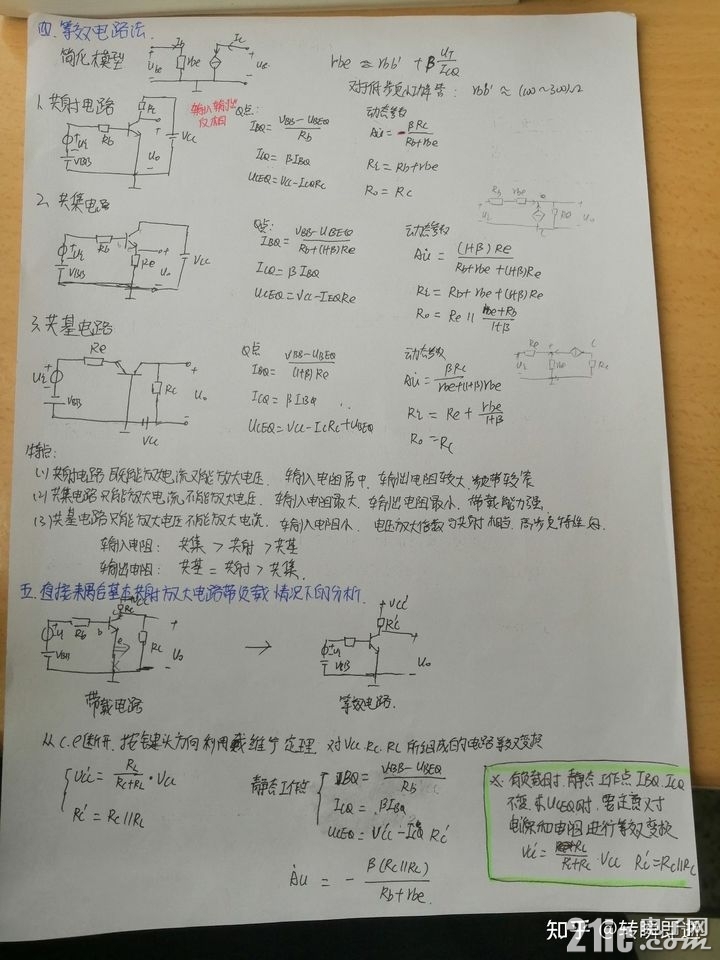 四. 等效电路法.
简化模型
Ib Ic
Ube rbe Uce
rbe ≈ rbb' + β UT/ICQ
rbb' ≈ (100~300)Ω
1. 共射电路
输入输出反相
Rb Rc Ui VBB VCC Uo
Q点:
IBQ = (VBB - UBEQ)/Rb
ICQ = βIBQ
UCEQ = VCC - ICQRc
动态参数
Au = - βRc/(Rb+rbe)
Ri = Rb+rbe
Ro = Rc
2. 共集电路
Rb Re Ui VBB VCC Uo
Q点:
IBQ = (VBB - UBEQ)/(Rb+(1+β)Re)
ICQ = βIBQ
UCEQ = VCC - IEQRe
动态参数
Au = (1+β)Re/(Rb+rbe+(1+β)Re)
Ri = Rb+rbe+(1+β)Re
Ro = Re || (rbe+Rb)/(1+β)
Rb rbe Ui Re Uo
3. 共基电路
Re Ui VBB Rc VCC Uo
Q点
IBQ = (VBB - UBEQ)/((1+β)Re)
ICQ = βIBQ
UCEQ = VCC - ICRc + UBEQ
动态参数
Au = βRc/(rbe+(1+β)rbe)
Ri = Re + rbe/(1+β)
Ro = Rc
Re Ui rbe c Rc
特点:
(1) 共射电路既能放大电流又能放大电压. 输入电阻居中, 输出电阻较大, 频带较窄
(2) 共集电路只能放大电流不能放大电压. 输入电阻最大, 输出电阻最小, 带载能力强.
(3) 共基电路只能放大电压不能放大电流. 输入电阻小, 电压放大倍数与共射相当, 高频特性好.
输入电阻: 共集 > 共射 > 共基
输出电阻: 共基 = 共射 > 共集.
五. 直接耦合基本共射放大电路带负载情况下的分析.
Rb b e Rc VCC Ui VBB Uo
→
VCC' Rc' Ui VBB Uo
带载电路
等效电路.
从c.e断开, 按箭头方向利用戴维宁定理 对VCC. Rc. RL 所组成的电路等效变换
VCC' = RL/(Rc+RL) · VCC
Rc' = Rc||RL
静态工作点
IBQ = (VBB - UBEQ)/Rb
ICQ = βIBQ
UCEQ = VCC' - ICQ Rc'
Au = - β(Rc||RL)/(Rb+rbe)
※: 有负载时, 静态工作点 IBQ. ICQ
不变, 求UCEQ时, 要注意对
电源和电阻进行等效变换
VCC' = RL/(Rc+RL) · VCC Rc' = Rc||RL
知乎 @转瞬即逝
21ic 电子网
21ic.com